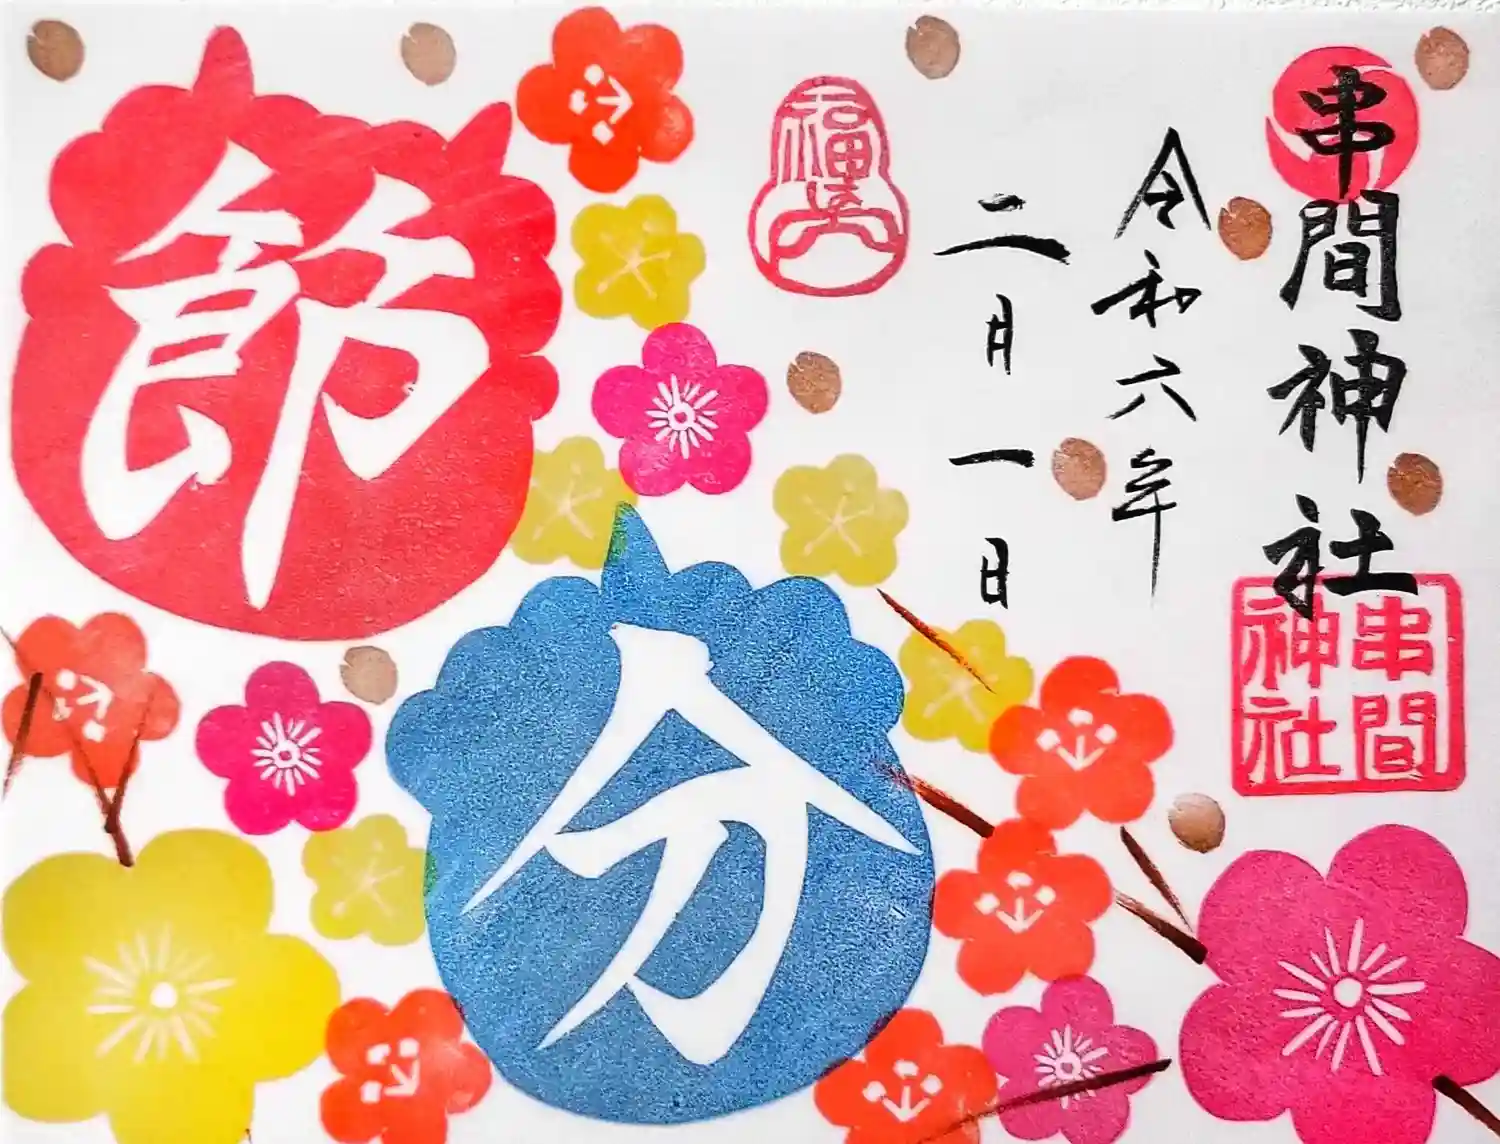 串間神社
串間
神社
令和六年
二月一日
節分